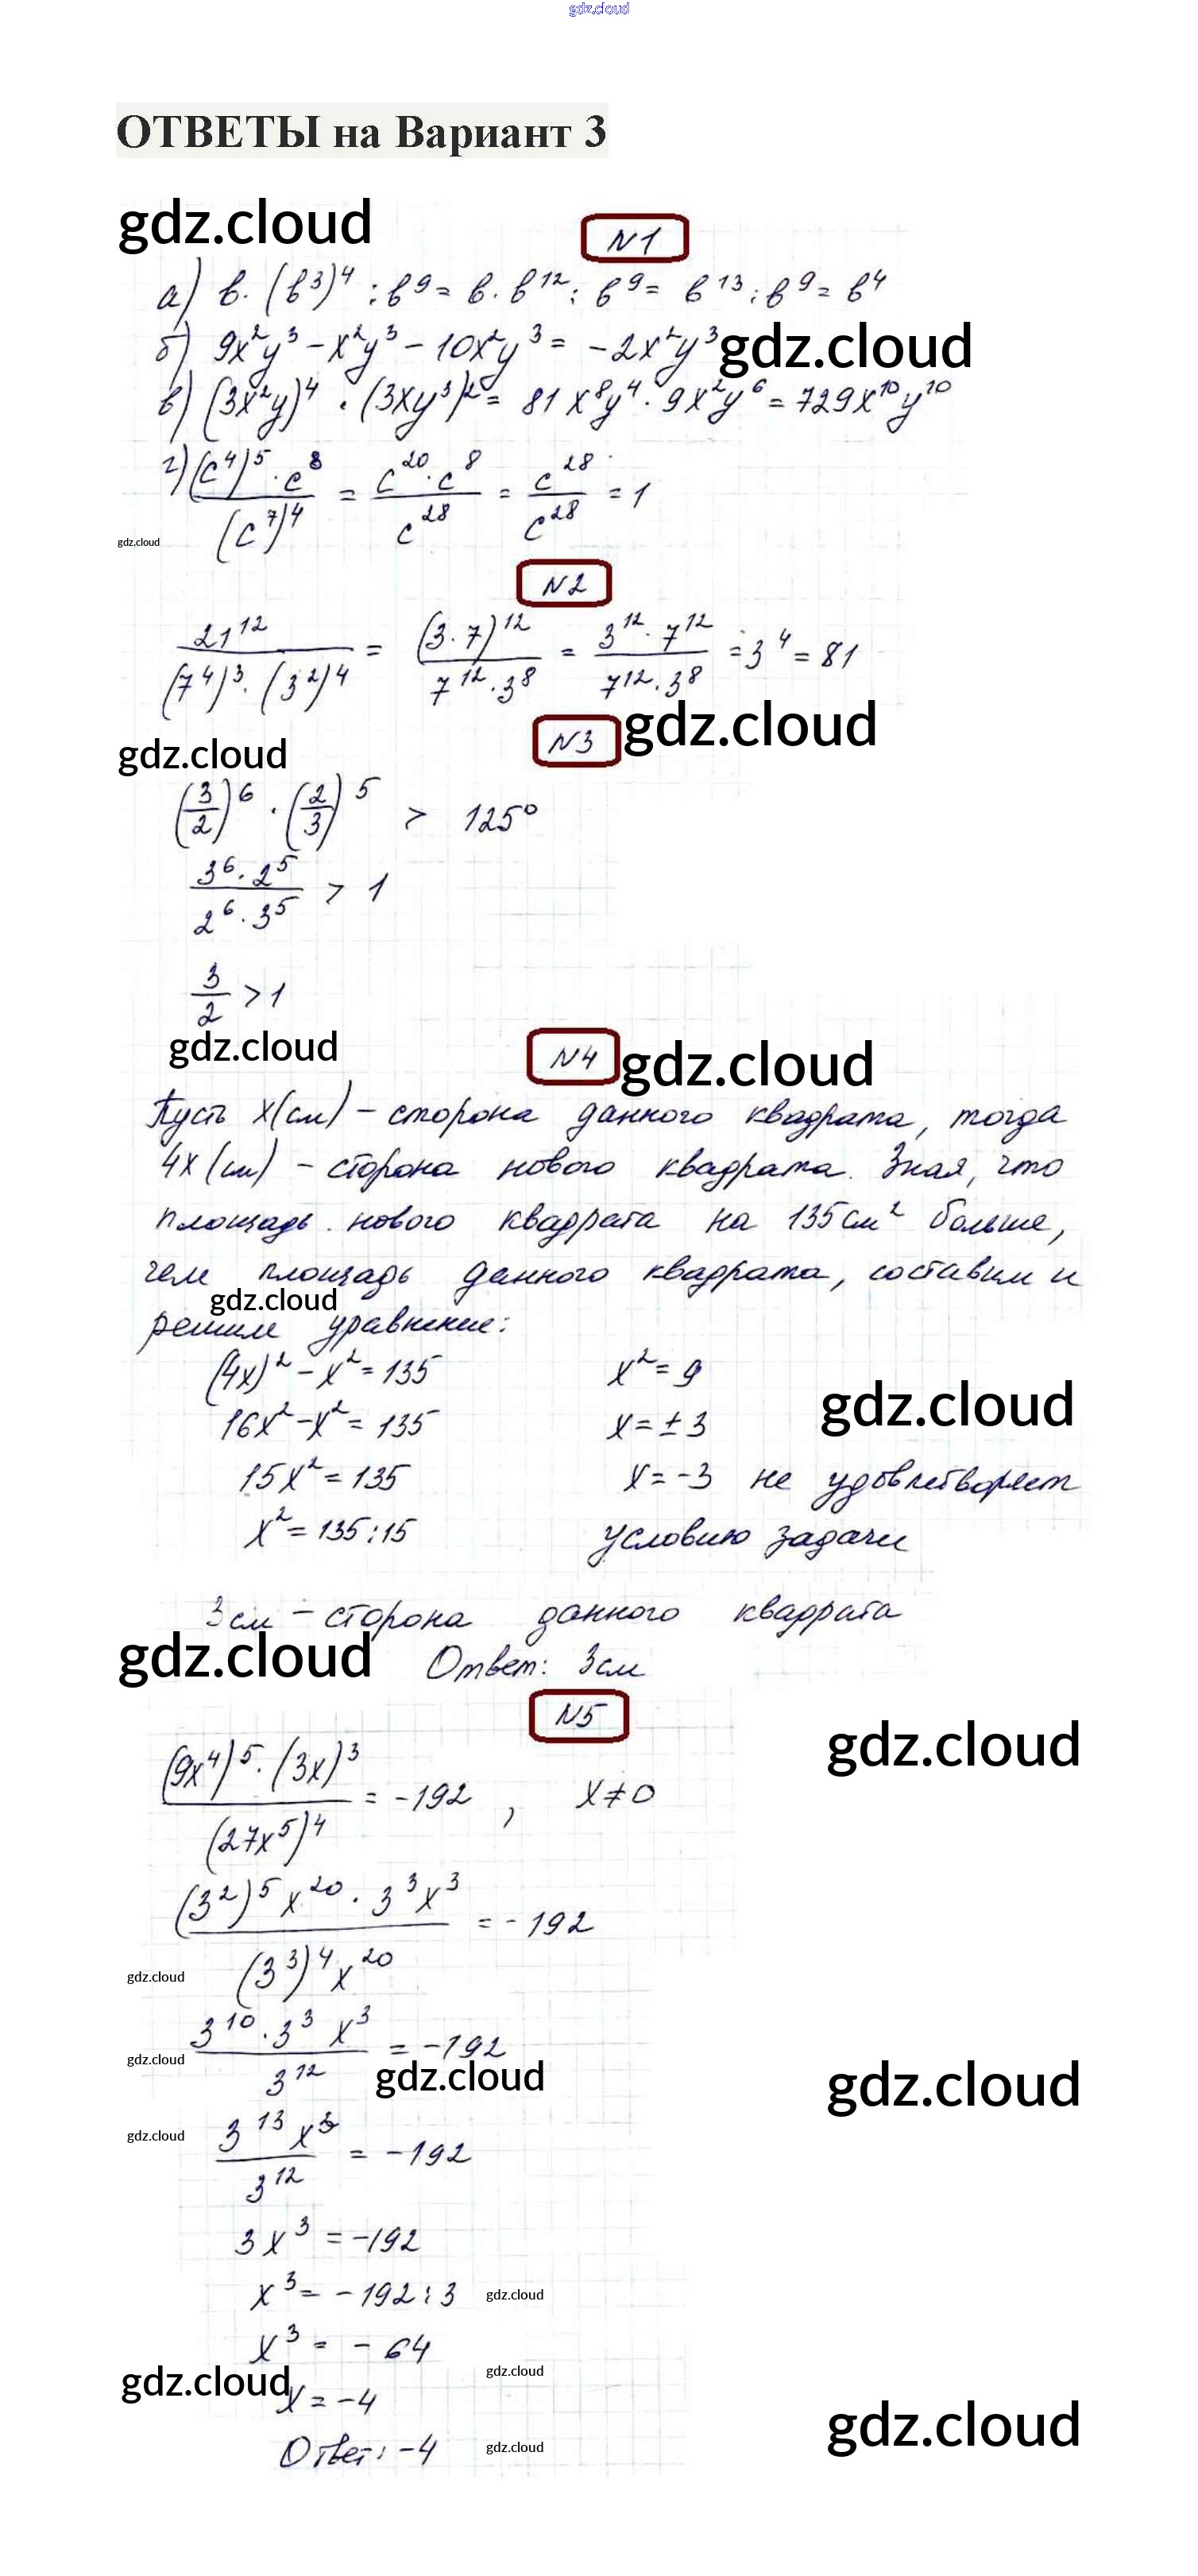 gdz.cloud
ОТВЕТЫ на Вариант 3
gdz.cloud
N1
а) b·(b³)⁴:b⁹= b·b¹²:b⁹= b¹³:b⁹= b⁴
б) 9x²y³-x²y³-10x²y³= -2x²y³
gdz.cloud
в) (3x²y)⁴·(3xy³)²= 81x⁸y⁴·9x²y⁶=729x¹⁰y¹⁰
г) (c⁴)⁵·c⁸/(c⁷)⁴ = c²⁰·c⁸/c²⁸ = c²⁸/c²⁸ = 1
gdz.cloud
N2
21¹²/(7⁴)³·(3²)⁴ = (3·7)¹²/7¹²·3⁸ = 3¹²·7¹²/7¹²·3⁸ = 3⁴ = 81
gdz.cloud
N3
gdz.cloud
(3/2)⁶·(2/3)⁵ > 125⁰
3⁶·2⁵/2⁶·3⁵ > 1
3/2 > 1
gdz.cloud
N4
gdz.cloud
Пусть x(см) - сторона данного квадрата, тогда
4x(см) - сторона нового квадрата. Зная, что
площадь нового квадрата на 135см² больше,
чем площадь данного квадрата, составим и
gdz.cloud
решим уравнение:
(4x)²-x²=135
16x²-x²=135
15x²=135
x²=135:15
x²=9
x=±3
gdz.cloud
x=-3 не удовлетворяет
условию задачи
3см - сторона данного квадрата
gdz.cloud
Ответ: 3см
N5
gdz.cloud
(9x⁴)⁵·(3x)³/(27x⁵)⁴ = -192, x≠0
(3²)⁵x²⁰·3³x³/(3³)⁴x²⁰ = -192
gdz.cloud
3¹⁰·3³x³/3¹² = -192
gdz.cloud
gdz.cloud
gdz.cloud
3¹³x³/3¹² = -192
gdz.cloud
3x³=-192
x³=-192:3
gdz.cloud
x³=-64
gdz.cloud
gdz.cloud
x=-4
gdz.cloud
Ответ: -4
gdz.cloud